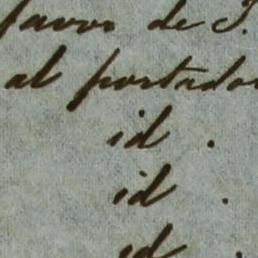 favor de J.
al portador
id .
id .
id .